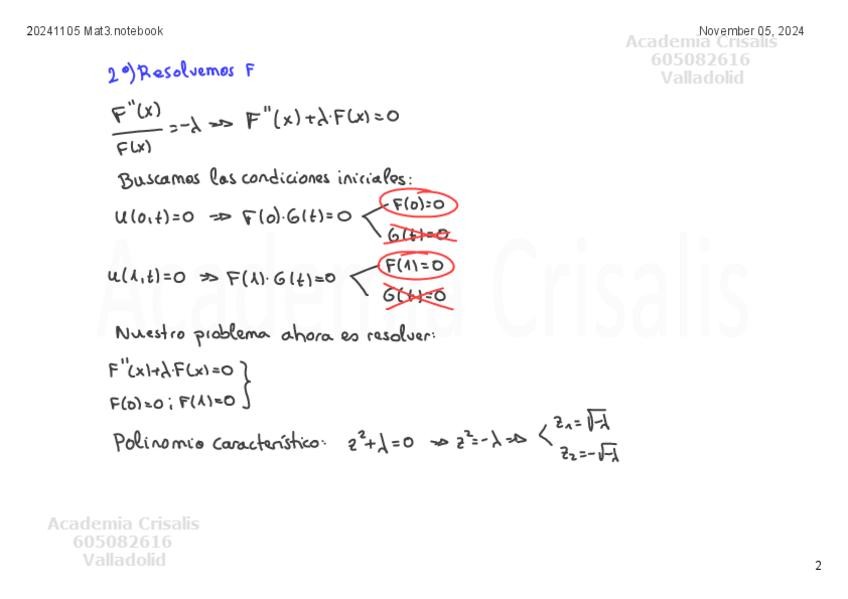 20241105 Mat3.notebook
November 05, 2024
Academia Crisalis
605082616
Valladolid
2º) Resolvemos F
F''(x)/F(x) = -λ ⇒ F''(x)+λ·F(x)=0
Buscamos las condiciones iniciales:
u(0,t)=0 ⇒ F(0)·G(t)=0
F(0)=0
G(t)=0
u(1,t)=0 ⇒ F(1)·G(t)=0
F(1)=0
G(t)=0
Academia Crisalis
Nuestro problema ahora es resolver:
F''(x)+λ·F(x)=0
F(0)=0; F(1)=0
Polinomio característico: z²+λ=0 ⇒ z²=-λ ⇒
z₁=√-λ
z₂=-√-λ
Academia Crisalis
605082616
Valladolid
2